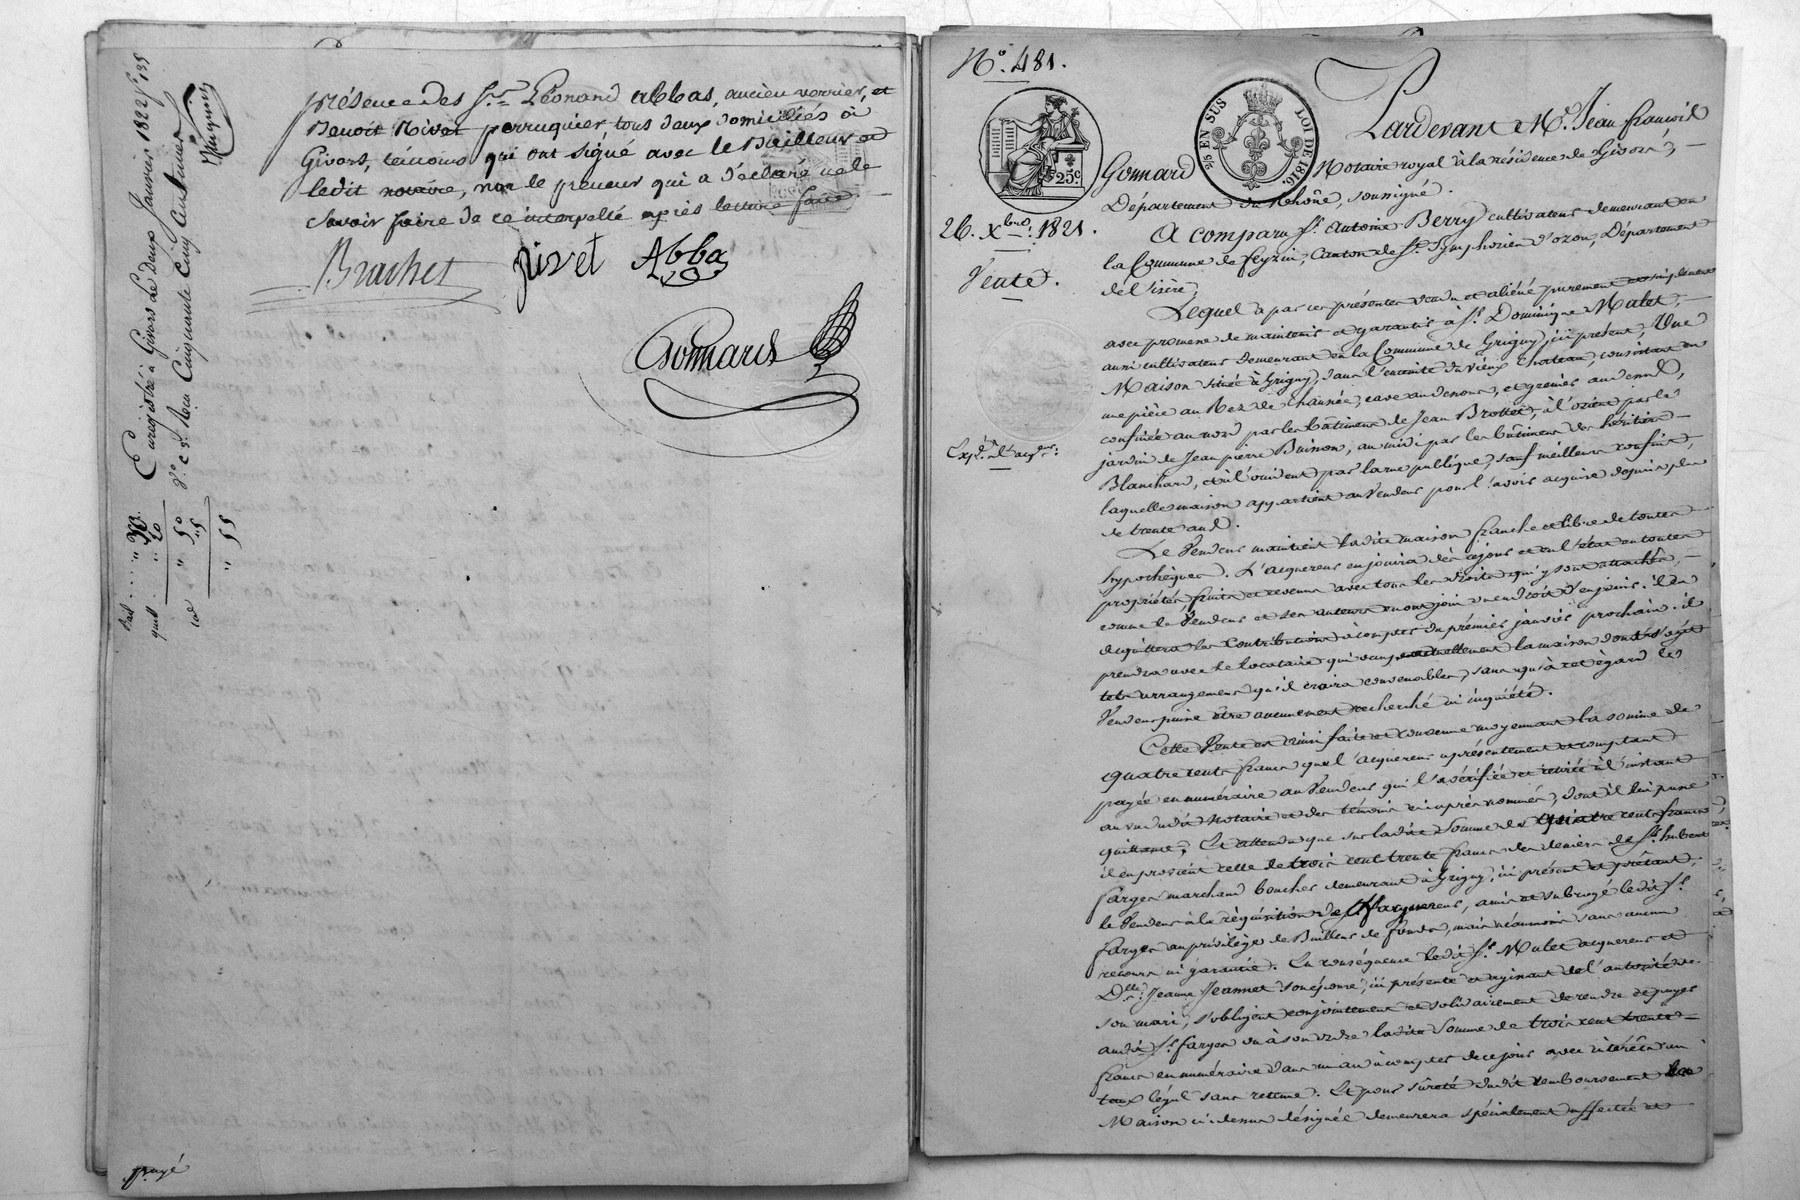 présence des Srs Léonard Abbas, ancien verrier, et
Benoit Rivet perruquier, tous deux domiciliés à
Givors, témoins qui ont signé avec le Bailleur et
ledit notaire, non le preneur qui a déclaré ne le
savoir faire de ce interpellé après lecture faite
Brachet
Rivet
Abba
Gonnard
Enregistré à Givors le deux janvier 1822 fo 135
Reçu Cinquante Cinq Centimes
Bail
quitt
" 50
" 5
" 55
payé
No. 481.
25 EN SUS
LOI DE 1816.
25c
Pardevant Me. Jean François
Gonnard Notaire royal à la résidence de Givors, —
Département du Rhône, soussigné.
26. Xbre. 1821.
Vente.
A comparu Sr. Antoine Berry cultivateur demeurant en
la Commune de feyzin, Canton de St. Symphorien d'ozon, Département
de l'isère,
Lequel a par ces présentes vendu et aliéné purement et simplement
avec promesse de maintenir et garantir à Sr. Dominique Malet, —
aussi cultivateur demeurant en la Commune de Grigny, ici présent, Une
Maison située à Grigny, dans l'enceinte du vieux Chateau, consistant en
une pièce au Rez de chaussée, cave au dessous, et grenier au dessus,
confinée au nord par les bâtimens de Jean Brottet, à l'orient par le
jardin de Jean pierre Buisson, au midi par les bâtimens des héritiers —
Blanchard, et à l'occident par la rue publique, sauf meilleurs confins,
laquelle maison appartient au Vendeur pour l'avoir acquise depuis plus
de trente ans.
Le Vendeur maintient ladite maison franche et libre de toutes
hypothèques. L'acquereur en jouira dès ce jour et en l'état en toutes
propriétés, fruits et revenus avec tous les droits qui y sont attachés, —
comme le Vendeur et ses auteurs en ont joui ou eu droit d'en jouir. il en
acquittera les contributions à compter du premier janvier prochain. il
prendra avec le locataire qui occupe actuellement la maison dont s'agit
tels arrangemens qu'il croira convenables, sans qu'à cet égard le
Vendeur puisse être aucunement recherché ni inquiété.
Cette Vente est ainsi faite et convenue moyennant la somme de
quatre cents francs que l'acquereur a présentement et comptant
payée en numéraire au Vendeur qui l'a vérifiée et retirée à l'instant
au vu dudit Notaire et des témoins ci après nommés, dont il lui passe
quittance, Et attendu que sur ladite somme de quatre cents francs
il en provient celle de trois cent trente francs des deniers de Sr. hubert
farges marchand boucher demeurant à Grigny, ici présent et prêtant,
le Vendeur à la réquisition de l'acquereur, a mis et subrogé ledit Sr.
farges au privilège de Bailleur de fonds, mais néanmoins sans aucun
recours ni garantie. En conséquence ledit Sr. Malet acquereur et
Dlle. Jeanne Jeannet son épouse, ici présente et agissant de l'autorité de
son mari, s'obligent conjointement et solidairement de rendre et payer
audit Sr. farges ou à son ordre ladite somme de trois cent trente —
francs en numéraire dans un an à compter de ce jour avec intérêts au
taux légal sans retenue. Et pour sûreté dudit remboursement la
Maison ci dessus désignée demeurera spécialement affectée et